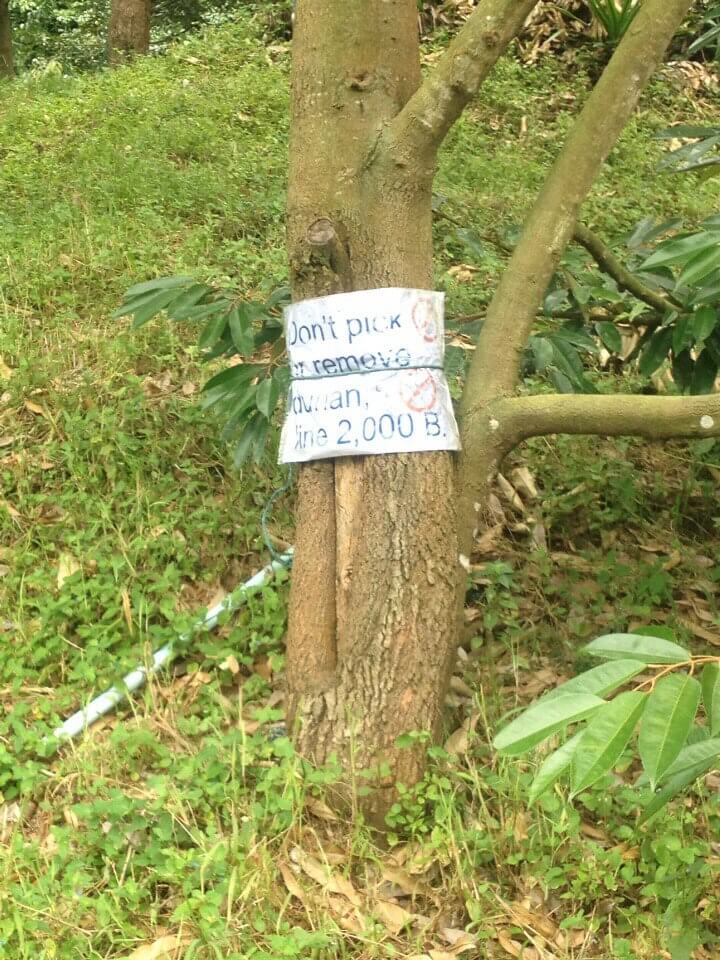 Don't pick
or remove
durian,
fine 2,000 B.